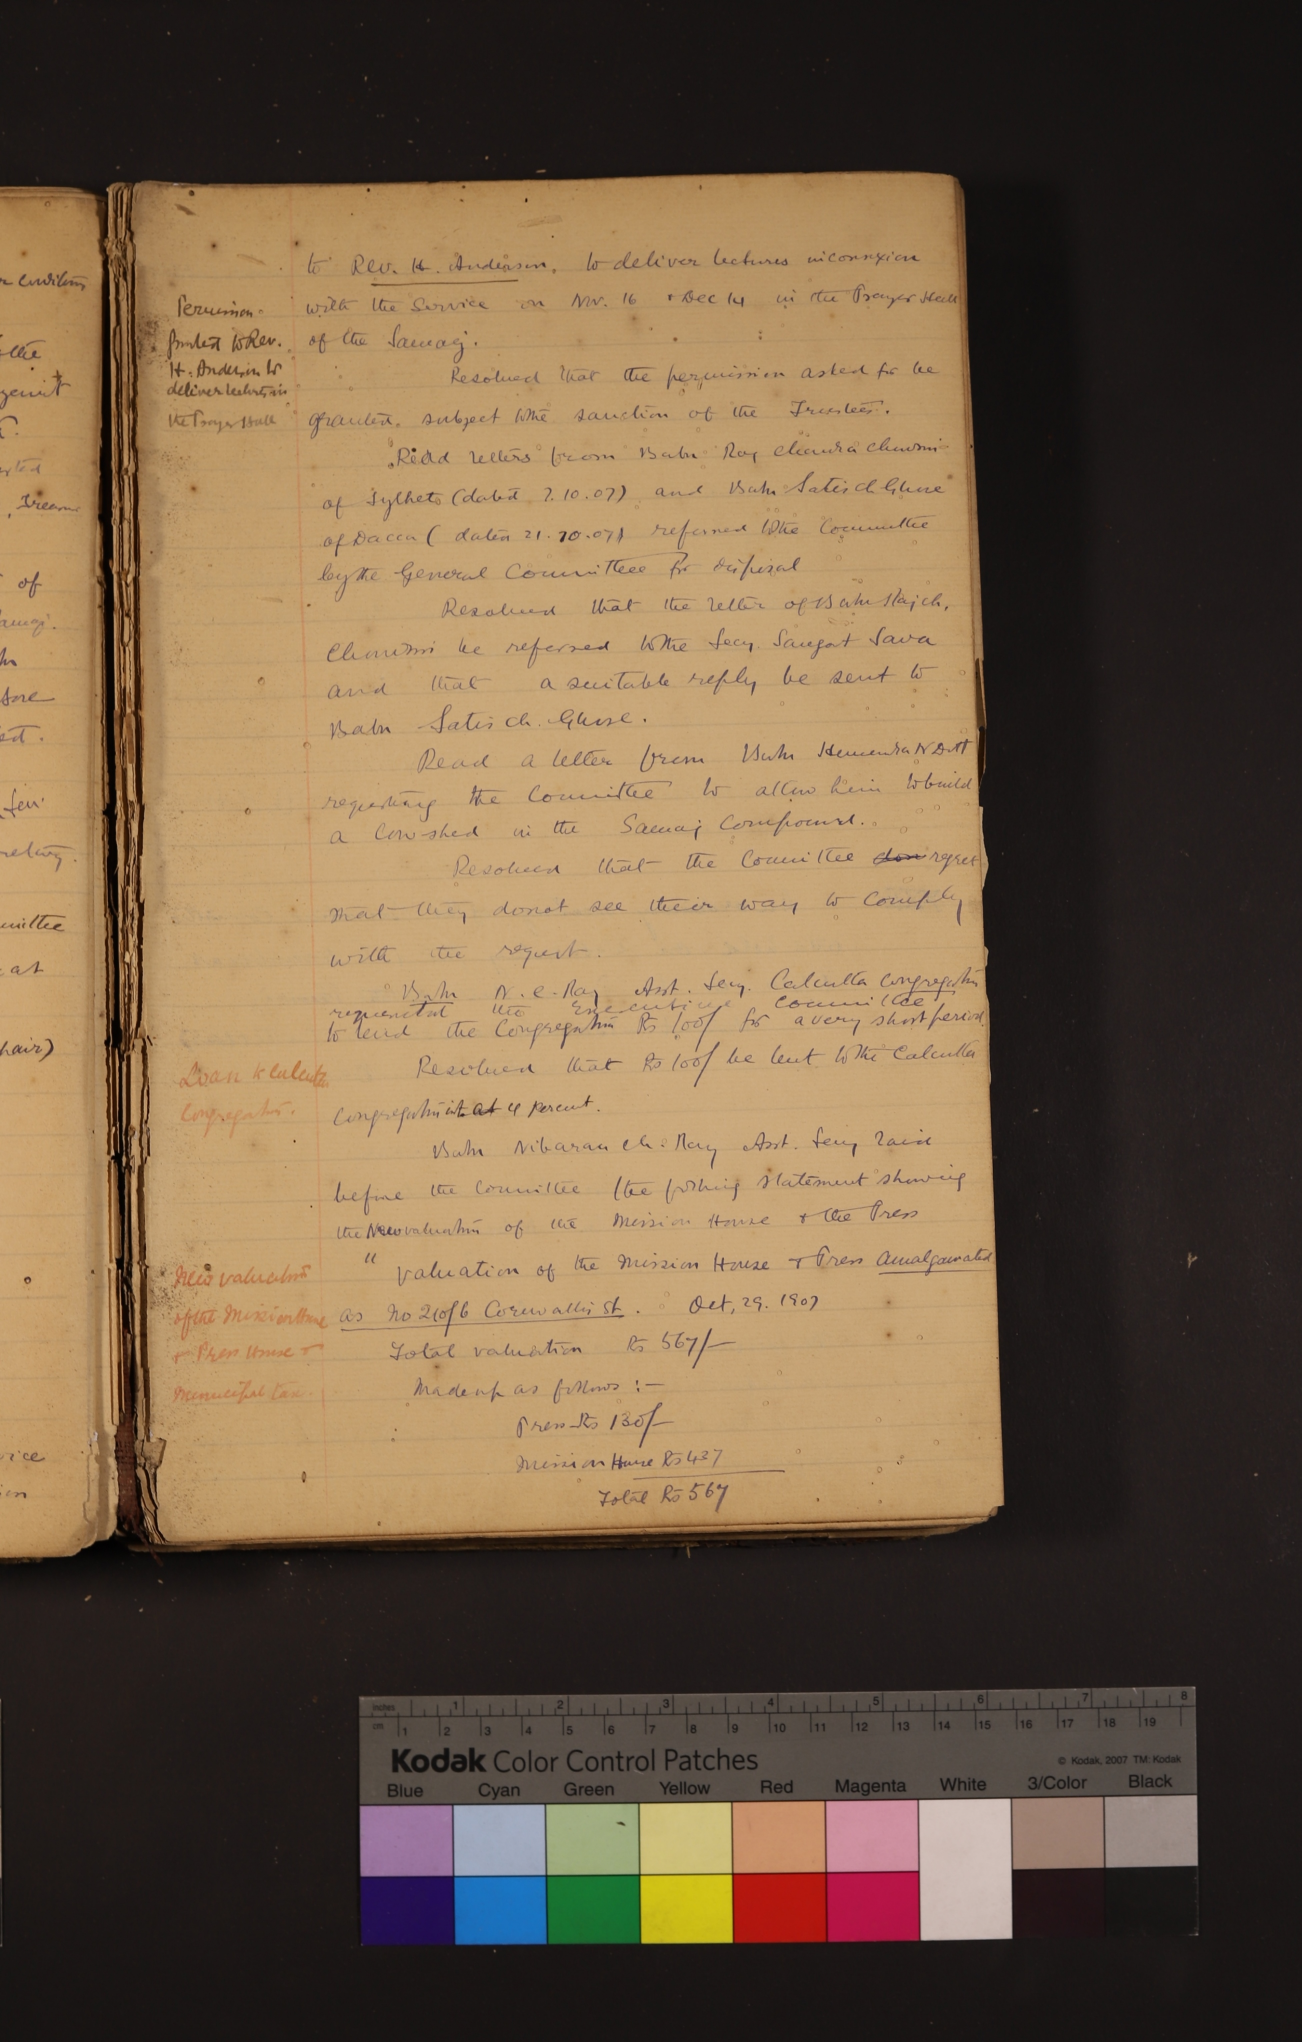 to Rev. H. Anderson, to deliver lectures in connexion
with the Service on Nov. 16 + Dec 14 in the Prayer Hall
of the Samaj.
Permission
granted to Rev.
H. Anderson to
deliver lectures in
the Prayer Hall
Resolved that the permission asked for be
granted, subject to the sanction of the Trustees.
Read letters from Babu Raj Chandra Chowdhuri
of Sylhet (dated 7.10.07) and Babu Satis Ch Ghose
of Dacca (dated 21.10.07) referred to the Committee
by the General Committee for disposal
Resolved that the letter of Babu Raj Ch.
Chowdhuri be referred to the Secy. Sangat Sava
and that a suitable reply be sent to
Babu Satis Ch. Ghose.
Read a letter from Babu Hemendra N Dutt
requesting the Committee to allow him to build
a Cow-shed in the Samaj Compound.
Resolved that the Committee regret
that they do not see their way to comply
with the request.
Babu N. C. Ray Asst. Secy. Calcutta Congregation
requested the Executive Committee
to lend the Congregation Rs 100/ for a very short period.
Loan to Calcutta
Congregation.
Resolved that Rs 100/ be lent to the Calcutta
Congregation at 4 percent.
Babu Nibaran Ch. Ray Asst. Secy laid
before the Committee the following statement showing
the New valuation of the Mission House + the Press
New valuation
of the Mission House
+ Press House +
Municipal tax.
" Valuation of the Mission House + Press Amalgamated
as No 210/6 Cornwallis St. Oct, 29. 1907
Total valuation Rs 567/-
Made up as follows :—
Press Rs 130/-
Mission House Rs 437
Total Rs 567
r conditions
the
of
Samaj.
mittee
at
chair)
vice
inches 1 2 3 4 5 6 7 8
cm 1 2 3 4 5 6 7 8 9 10 11 12 13 14 15 16 17 18 19
Kodak Color Control Patches
© Kodak, 2007 TM: Kodak
Blue Cyan Green Yellow Red Magenta White 3/Color Black